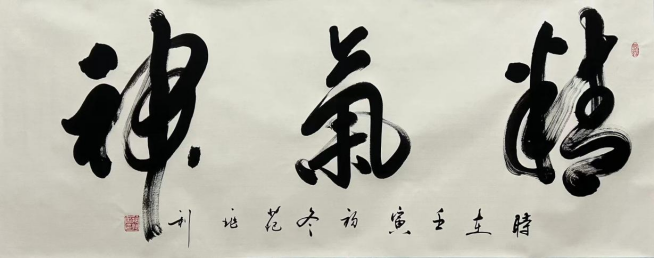 精氣神
時在壬寅初冬范雅利